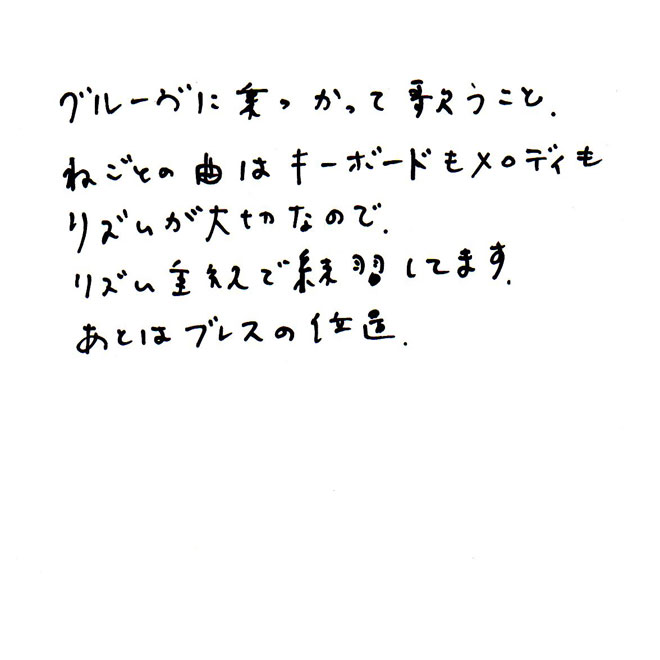 グルーヴに乗っかって歌うこと.
ねごとの曲はキーボードもメロディも
リズムが大切なので.
リズム重視で練習してます.
あとはブレスの位置.